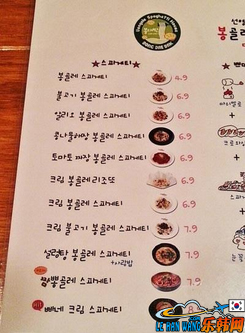 Vongole Spaghetti House
BONG DAE BAK
★스파게티★
봉골레 스파게티 4.9
불고기 봉골레 스파게티 6.9
알리오 봉골레 스파게티 6.9
콩나물해장 봉골레 스파게티 6.9
토마토 짜장 봉골레 스파게티 6.9
크림 봉골레 리조또 6.9
크림 봉골레 스파게티 6.9
크림 불고기 봉골레 스파게티 7.9
설렁탕 봉골레 스파게티 7.9
+사리밥
짬뽕골레 스파게티 7.9
빠네 크림 스파게티
봉골
+
+
LE HAN WANG 乐韩网